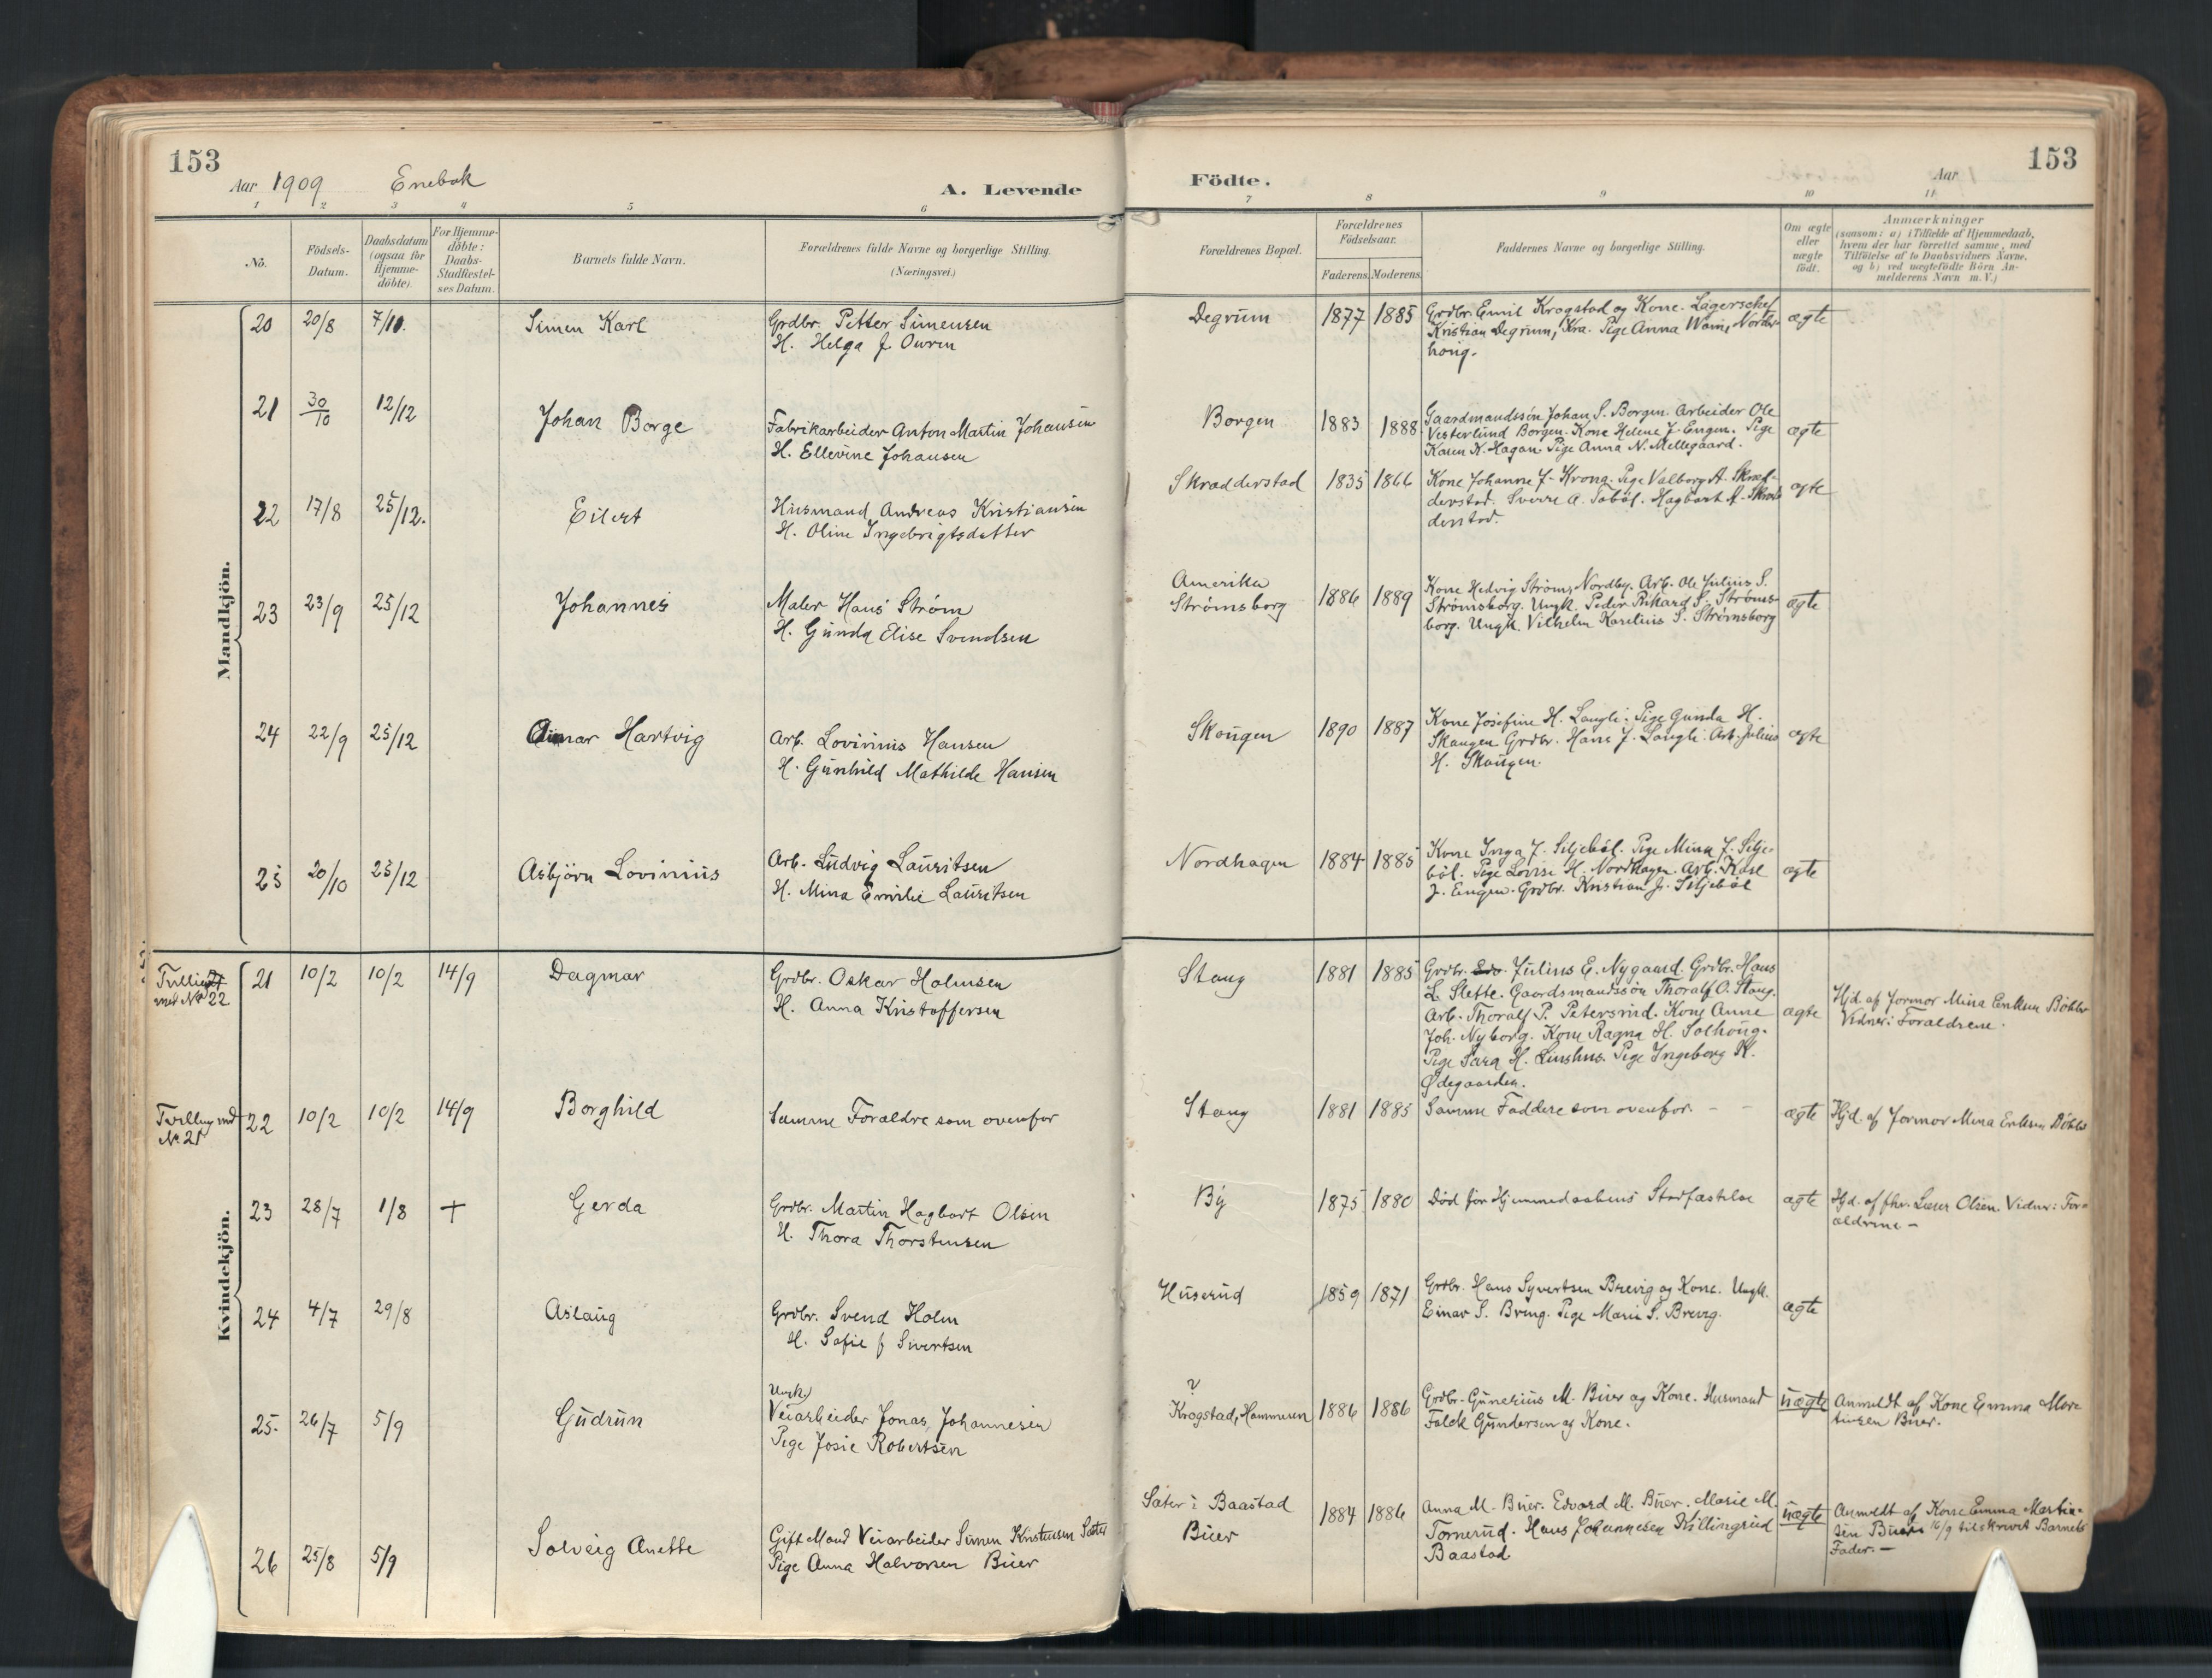 153
Aar 1909 Enebak
A. Levende
Födte.
Aar
153
1 2 3 4 5 6 7 8 9 10 11
No.
Födsels-
Datum.
Daabsdatum
(ogsaa for
Hjemme-
döbte)
For Hjemme-
döbte:
Daabs-
Stadfæstel-
ses Datum.
Barnets fulde Navn.
Forældrenes fulde Navne og borgerlige Stilling.
(Næringsvei.)
Forældrenes Bopæl.
Forældrenes
Födselsaar.
Faderens. Moderens.
Faddernes Navne og borgerlige Stilling.
Om ægte
eller
uægte
födt.
Anmærkninger
(saasom: a) i Tilfælde af Hjemmedaab,
hvem der har forrettet samme, med
Tilföielse af to Daabsvidners Navne.
og b) ved uægtefödte Börn An-
melderens Navn m.V.)
Mandkjön.
20 20/8 7/10. Simen Karl
Grdbr. Petter Simensen
H. Helga J. Ouren
Degrum 1877 1885
Grdbr. Emil Krogstad og Kone. Lagerschef
Kristian Degrum, Kra. Pige Anna
houg.
ægte
21 30/10 12/12 Johan Borge
Fabrikarbeider Anton Martin Johansen
H. Ellevine Johansen
Borgen 1883 1888
Gaardmandssön Johan S. Borgen. Arbeider Ole
Vesterlund Borgen. Kone Helene J. Engen. Pige
Karen K. Hagan. Pige Anna N. Mellegaard.
ægte
22 17/8 25/12. Eilert
Husmand Andreas Kristiansen
H. Oline Ingebrigtsdatter
Skradderstad 1835 1866
Kone Johanne J. Krona. Pige Valborg A. Skræd-
derstad. Sverre A. Hagbart A. Skræd-
derstad.
ægte
23 23/9 25/12 Johannes
Maler Hans Ström
H. Gunda Elise Svendsen
Amerika
Strömsborg 1886 1889
Kone Hedvig Ström, Nordby. Arb. Ole Julius S.
Strömsborg. Ungk. Peder Rikard S. Ströms-
borg. Ungk. Vilhelm Karelius S. Strömsborg
ægte
24 22/9 25/12 Hartvig
Arb. Lovinius Hansen
H. Gunhild Mathilde Hansen
Skougen 1890 1887
Kone Josefine H. Langli. Pige Gunda H.
Skaugen Grdbr. Hans J. Langli. Arb. Julius
H. Skaugen.
ægte
25 20/10 25/12 Asbjörn Lovinius
Arb. Ludvig Lauritsen
H. Mina Emilie Lauritsen
Nordhagen 1884 1885
Kone Inga J. Siljeböl. Pige Mina J. Silje-
böl. Pige Lovise H. Nordhagen. Arb. Karl
J. Engen. Grdbr. Kristian J. Siljeböl
ægte
Kvindekjön.
Tvilling
med No 22
21 10/2 10/2 14/9 Dagmar
Grdbr. Oskar Holmsen
H. Anna Kristoffersen
Stang 1881 1885
Grdbr. Julius E. Nygaard. Grdbr. Hans
L. Slette. Gaardsmandssön Thoralf O. Stang.
Arb. Thoralf P. Petersrud. Kone Anne
Joh. Nyborg. Kone Ragna H. Solhoug.
Pige Sara H. Pige Ingeborg K.
Ødegaarden.
ægte
Hjd. af Jormor Mina Eriksen
Vidner: Forældrene.
Tvilling med
No. 21
22 10/2 10/2 14/9 Borghild
Samme Forældre som ovenfor
Stang 1881 1885
Samme Faddere som ovenfor. - -
ægte
Hjd. af Jormor Mina Eriksen
23 28/7 1/8 + Gerda
Grdbr. Martin Hagbart Olsen
H. Thora Thorstensen
By 1875 1880
Död för Hjemmedaabens Stadfæstelse
ægte
Hjd. af Olsen. Vidner: For-
ældrene -
24 4/7 29/8 Aslaug
Grdbr. Svend Holm
H. Sofie f Sivertsen
Huserud 1859 1871
Grdbr. Hans Syvertsen Brevig og Kone. Ungk.
Einar S. Brevig. Pige Marie S. Brevig.
ægte
25. 26/7 5/9 Gudrun
Ungk.
Veiarbeider Jonas Johannesen
Pige Josie Robertsen
Krogstad, Hammeren 1886 1886
Grdbr. Gunerius M. Buer og Kone. Husmand
Falck Gundersen og Kone.
uægte
Anmeldt af Kone Emma Mar-
tinsen Buer.
26 25/8 5/9 Solveig Anette
Gift Mand Veiarbeider Simen Kristensen Sæter
Pige Anna Halvorsen Buer
Sæter i Baastad
Buer 1884 1886
Anna M. Buer. Edvard M. Buer. Marie M.
Tornerud. Hans Johannesen Killingrud
Baastad
uægte
Anmeldt af Kone Emma Martin-
sen Buer 16/9 tilskrevet Barnets
Fader. -